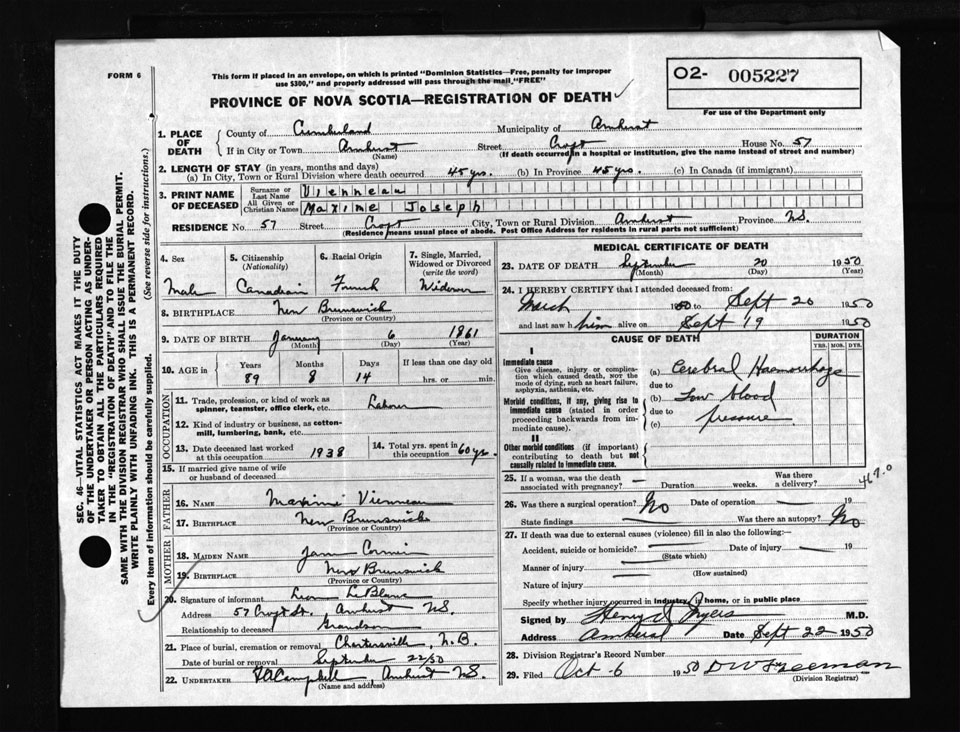 FORM 6
This form if placed in an envelope, on which is printed "Dominion Statistics—Free, penalty for improper
use $300," and properly addressed will pass through the mail "FREE"
O2- 005227
For use of the Department only
PROVINCE OF NOVA SCOTIA—REGISTRATION OF DEATH
1. PLACE OF DEATH
County of Cumberland Municipality of Amherst
If in City or Town Amherst Street Croft House No. 57
(Name) (If death occurred in a hospital or institution, give the name instead of street and number)
2. LENGTH OF STAY (in years, months and days)
(a) In City, Town or Rural Division where death occurred 45 yrs. (b) In Province 45 yrs. (c) In Canada (if immigrant)
3. PRINT NAME OF DECEASED
Surname or Last Name Vienneau
All Given or Christian Names Maxime Joseph
RESIDENCE No. 57 Street Croft City, Town or Rural Division Amherst Province N.S.
(Residence means usual place of abode. Post Office Address for residents in rural parts not sufficient)
4. Sex
Male
5. Citizenship
(Nationality)
Canadian
6. Racial Origin
French
7. Single, Married,
Widowed or Divorced
(write the word)
Widower
8. BIRTHPLACE New Brunswick
(Province or Country)
9. DATE OF BIRTH January 6 1861
(Month) (Day) (Year)
10. AGE in
Years Months Days If less than one day old
89 8 14 hrs. or min.
OCCUPATION
11. Trade, profession, or kind of work as
spinner, teamster, office clerk, etc. Labour
12. Kind of industry or business, as cotton-
mill, lumbering, bank, etc.
13. Date deceased last worked
at this occupation 1938
14. Total yrs. spent in
this occupation 60 yrs.
15. If married give name of wife
or husband of deceased
FATHER
16. NAME Maxime Vienneau
17. BIRTHPLACE New Brunswick
(Province or Country)
MOTHER
18. MAIDEN NAME Jane Cormier
19. BIRTHPLACE New Brunswick
(Province or Country)
20. Signature of informant Leon LeBlanc
Address 57 Croft St. Amherst N.S.
Relationship to deceased Grandson
21. Place of burial, cremation or removal Chartersville, N.B.
Date of burial or removal September 22/50
22. UNDERTAKER Campbell, Amherst N.S.
(Name and address)
MEDICAL CERTIFICATE OF DEATH
23. DATE OF DEATH September 20 1950
(Month) (Day) (Year)
24. I HEREBY CERTIFY that I attended deceased from:
March 1950 to Sept 20 1950
and last saw him alive on Sept 19 1950
CAUSE OF DEATH
DURATION
YRS. MOS. DYS.
I
Immediate cause
Give disease, injury or complica-
tion which caused death, NOT the
mode of dying, such as heart failure,
asphyxia, asthenia, etc.
Morbid conditions, if any, giving rise to
immediate cause (stated in order
proceeding backwards from im-
mediate cause).
II
Other morbid conditions (if important)
contributing to death but not
causally related to immediate cause.
(a) Cerebral Haemorrhage
due to
(b) Low blood
due to
(c) pressure
25. If a woman, was the death
associated with pregnancy? Duration weeks. Was there
a delivery?
26. Was there a surgical operation No Date of operation 19
State findings Was there an autopsy? No
27. If death was due to external causes (violence) fill in also the following:—
Accident, suicide or homicide? Date of injury 19
(State which)
Manner of injury
(How sustained)
Nature of injury
Specify whether injury occurred in industry, home, or in public place
Signed by Henry Myers M.D.
Address Amherst Date Sept 22 1950
28. Division Registrar's Record Number
29. Filed Oct - 6 1950 D W Freeman
(Division Registrar)
SEC. 46—VITAL STATISTICS ACT MAKES IT THE DUTY
OF THE UNDERTAKER OR PERSON ACTING AS UNDER-
TAKER TO OBTAIN ALL THE PARTICULARS REQUIRED
IN THE "REGISTRATION OF DEATH" AND TO FILE THE
SAME WITH THE DIVISION REGISTRAR WHO SHALL ISSUE THE BURIAL PERMIT.
WRITE PLAINLY WITH UNFADING INK. THIS IS A PERMANENT RECORD.
Every item of information should be carefully supplied. (See reverse side for instructions.)